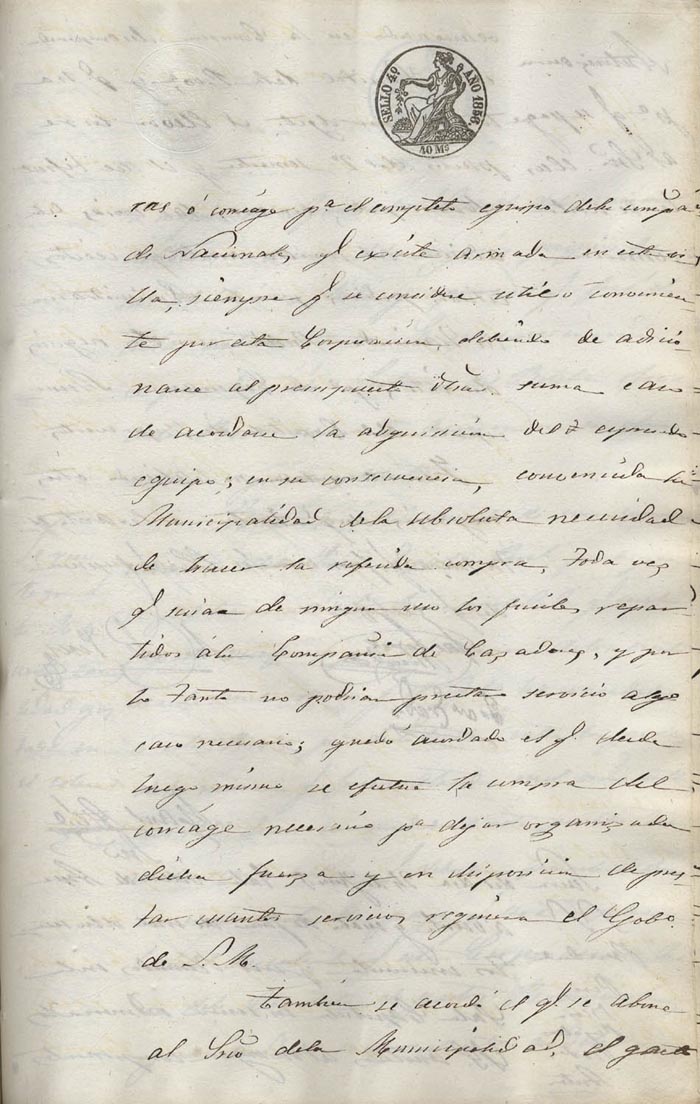 SELLO 4º AÑO 1856
40 Ms
ras ó coreáge pª el completo equipo dela compª
de Nacionales, qº existe armada en esta vi
lla, siempre qº se considere util o convenien
te por esta Corporacion, debiendo de adicio
narse al presupuesto dha suma caso
de acordarse la adquisicion del espresado
equipo; en su consecuencia, convencida la
Municipalidad de la absoluta necesidad
de hacer la referida compra, toda vez
qº sirven de ningun uso los fusiles repar
tidos ála Compañia de Cazadores, y por
lo tanto no podrian prestar servicio algo
caso necesario; quedó acordado el qº desde
luego mismo se efectue la compra del
coreáge necesario pª dejar organizada
dicha fuerza y en disposicion de pres
tar cuantos servicios requiera el Gobº
de S. M.
Tambien se acordó el qº se abone
al Srio dela Municipalidad, el gasto